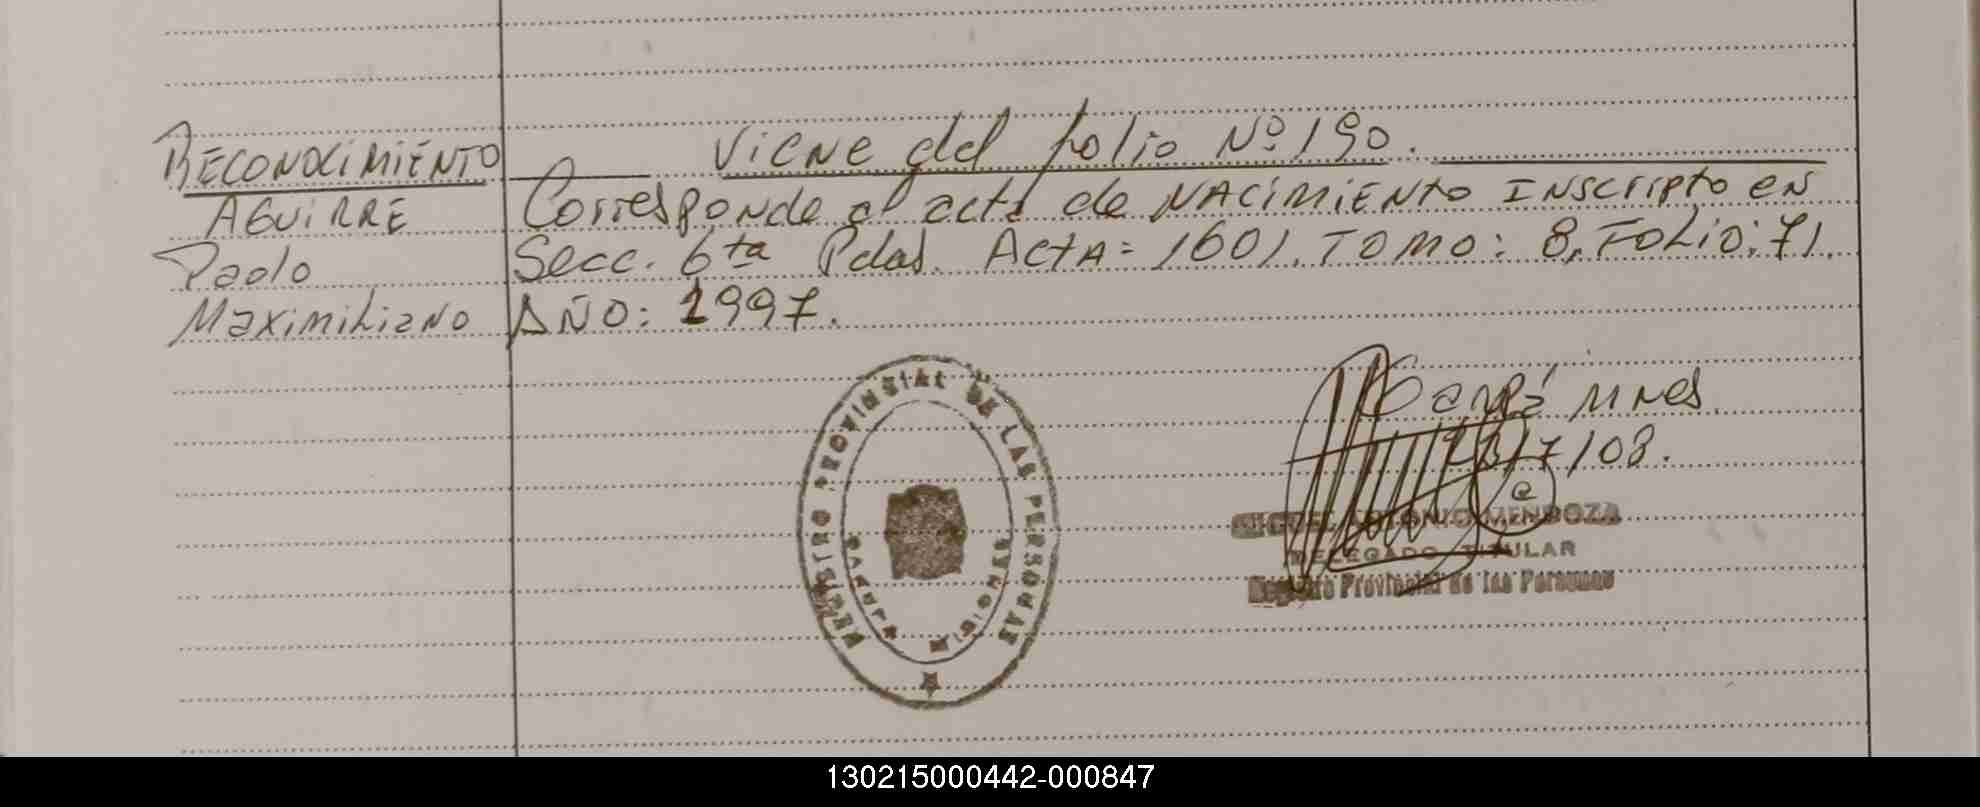 Viene del folio Nº 190.
RECONOCIMIENTO
AGUIRRE Corresponde al acta de NACIMIENTO INScripto en
Paolo Secc. 6ta Pdas. ActA: 1601. TOMO: 8, FOLIO: 71.
Maximiliano AÑO: 1997.
REGISTRO PROVINCIAL DE LAS PERSONAS
Mnes
/7/08.
ANTONIO MENDOZA
DELEGADO TITULAR
Registro Provincial de las Personas
130215000442-000847